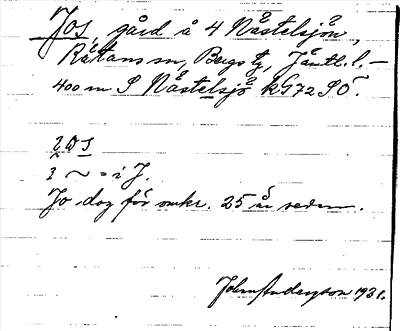 Jos, gård å 4 Nästelsjön,
Rätans sn, Bergs tg, Jämtl. l. –
400 m S Nästelsjö k G72 SÖ.
= i J.
Jo dog för omkr. 25 år sedan.
John Andersson 1931.